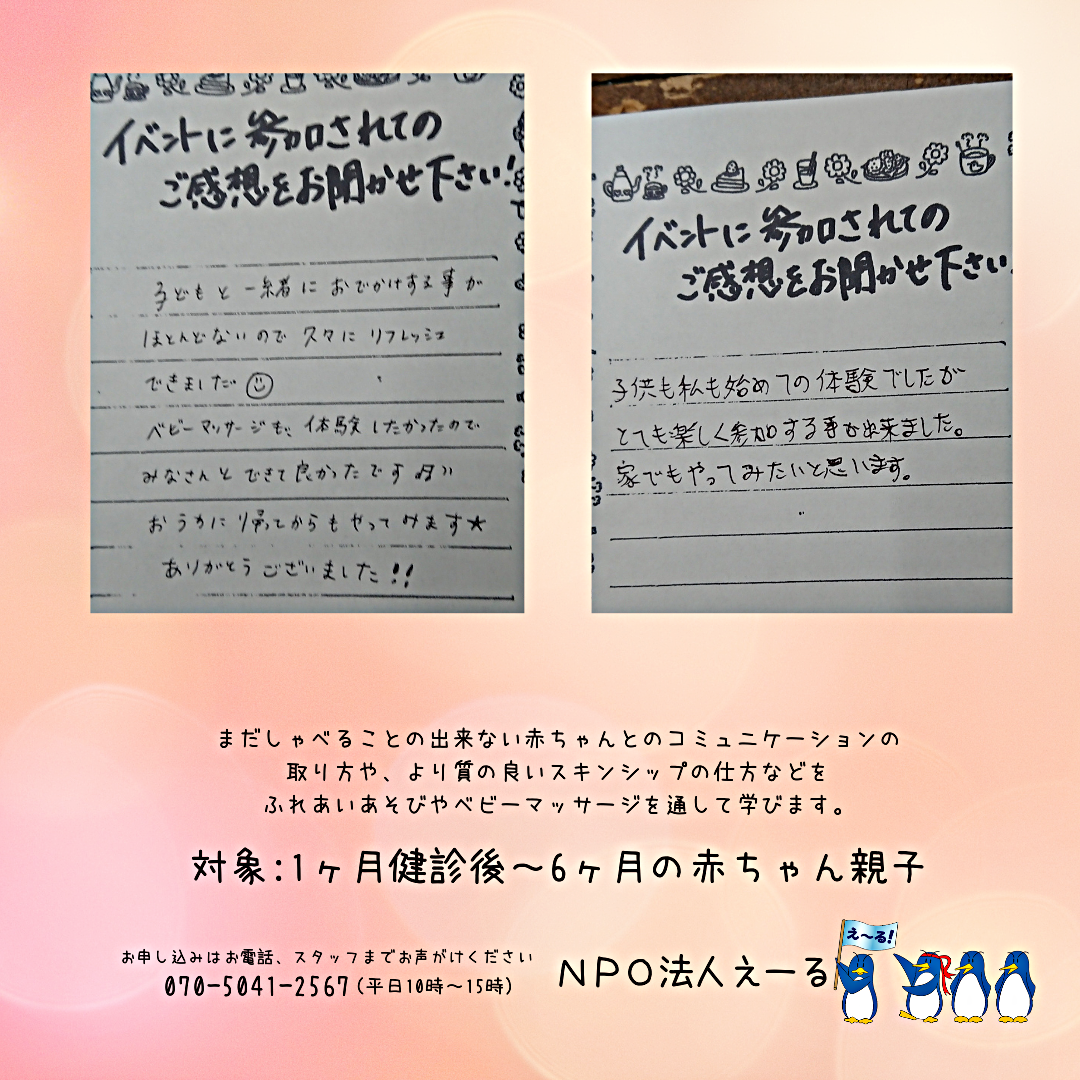 イベントに参加されての
ご感想をお聞かせ下さい!
子どもと一緒におでかけする事が
ほとんどないので 久々に リフレッシュ
できました
ベビーマッサージも、体験したかったので
みなさんとできて良かったです♫
おうちに帰ってからもやってみます★
ありがとうございました!!
イベントに参加されての
ご感想をお聞かせ下さい
子供も私も始めての体験でしたが
とても楽しく参加する事が出来ました。
家でもやってみたいと思います。
まだしゃべることの出来ない赤ちゃんとのコミュニケーションの
取り方や、より質の良いスキンシップの仕方などを
ふれあいあそびやベビーマッサージを通して学びます。
対象:1ヶ月健診後〜6ヶ月の赤ちゃん親子
お申し込みはお電話、スタッフまでお声がけください
070-5041-2567(平日10時〜15時)
NPO法人えーる
え〜る!